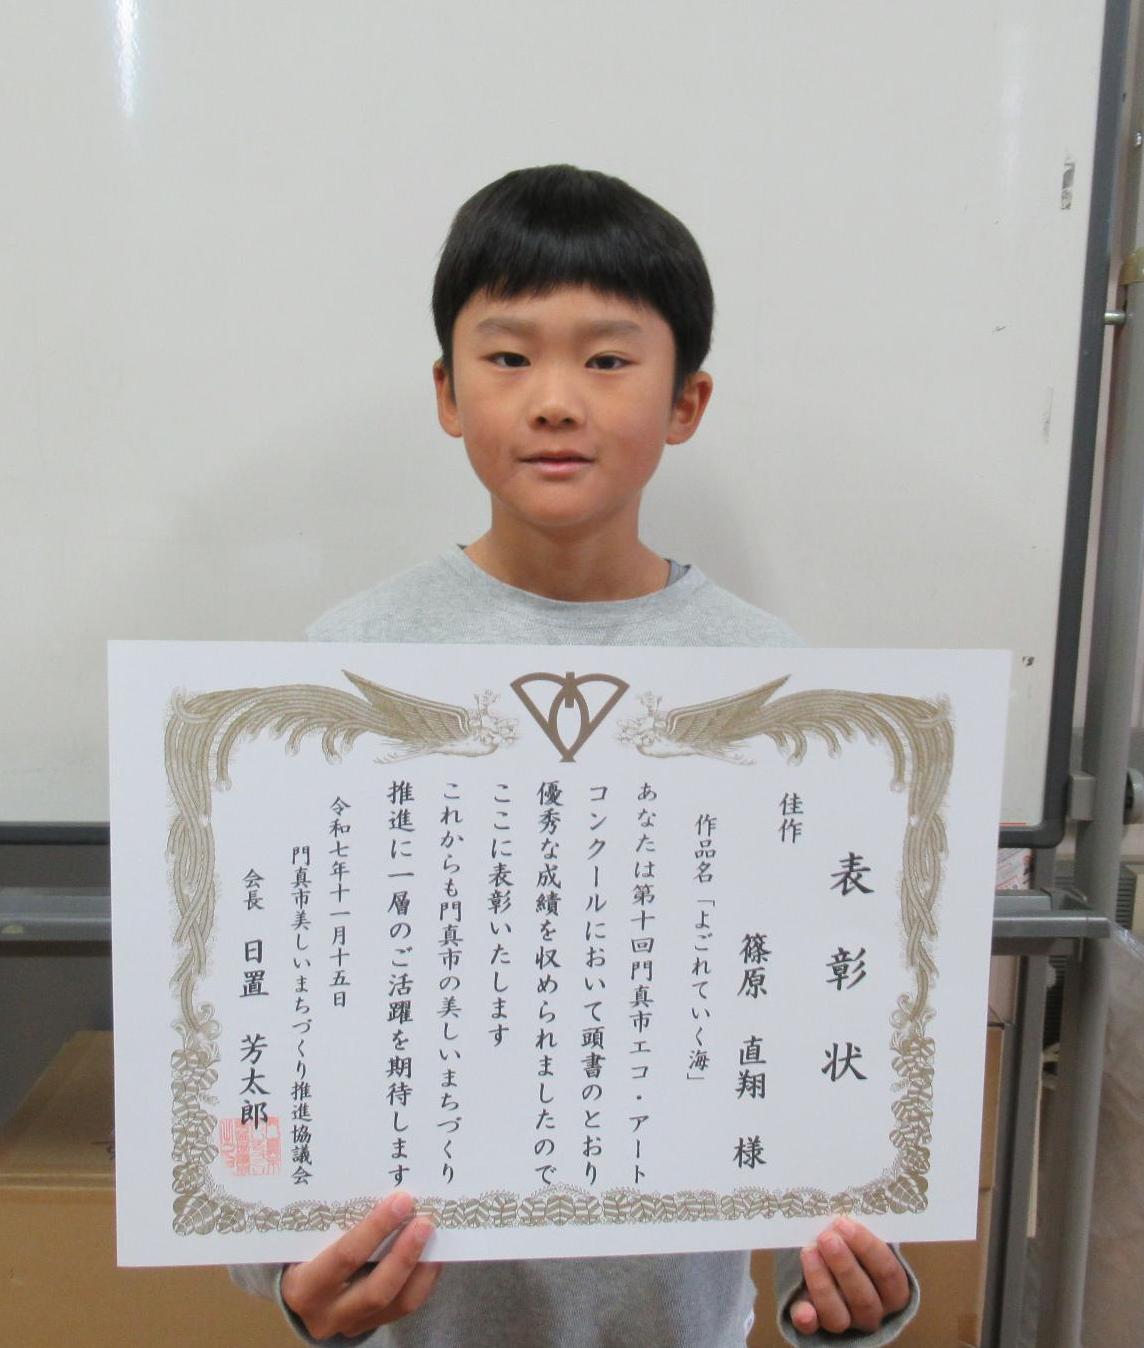 表彰状
佳作
篠原 直翔 様
作品名「よごれていく海」
あなたは第十回門真市エコ・アート
コンクールにおいて頭書のとおり
優秀な成績を収められましたので
ここに表彰いたします
これからも門真市の美しいまちづくり
推進に一層のご活躍を期待します
令和七年十一月十五日
門真市美しいまちづくり推進協議会
会長 日置 芳太郎